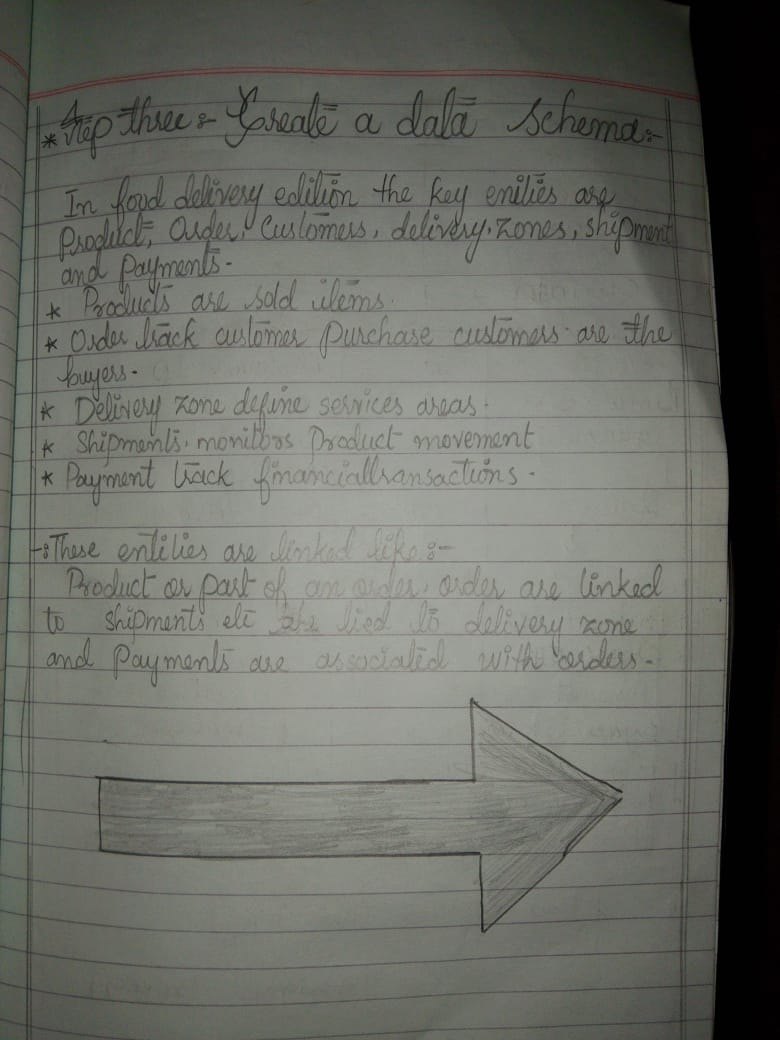 * Step three :- Create a data schema:-
In food delivery edition the key enities are
Product, Order, Customers, delivery. zones, shipment
and payments.
* Products are sold items.
* Order track customer purchase customers are the
buyers.
* Delivery zone define services areas.
* Shipments. monitors Product movement
* Payment track financialtransactions.
-:These entities are linked like:-
Product or part of an order. order are linked
to shipments etc tied to delivery zone
and payments are associated with orders.